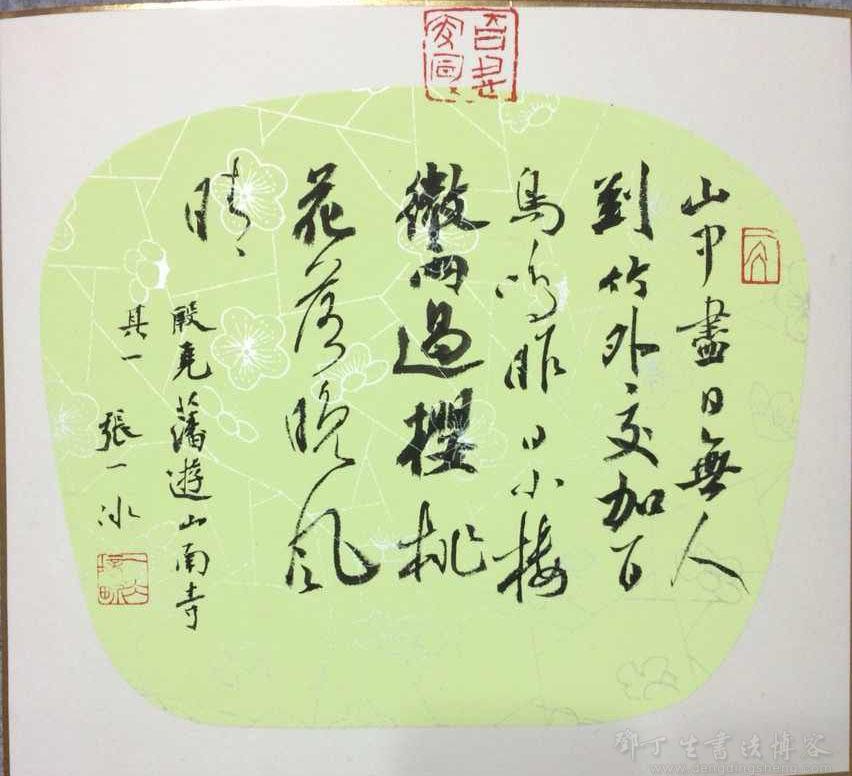 山中盡日無人
到竹外交加百
鳥鳴昨日小樓
微雨過櫻桃
花落晚風
晴
殷堯藩遊山南寺
其一 張一冰
鄧丁生書法博客
www.dengdingsheng.com